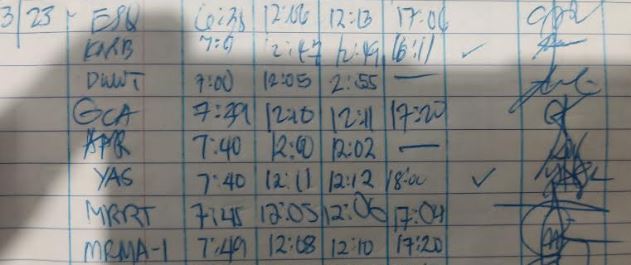 3/23 - ESQ 6:38 12:06 12:13 17:06
KMRB 12:47 12:49 16:11 ✓
DWNT 7:00 12:05 2:55 —
GCA 7:39 12:10 12:11 17:20
APR 7:40 12:00 12:02 —
YAS 7:40 12:11 12:12 18:00 ✓
MRRT 7:45 12:05 12:06 17:04
MRMA-1 7:49 12:08 12:10 17:20